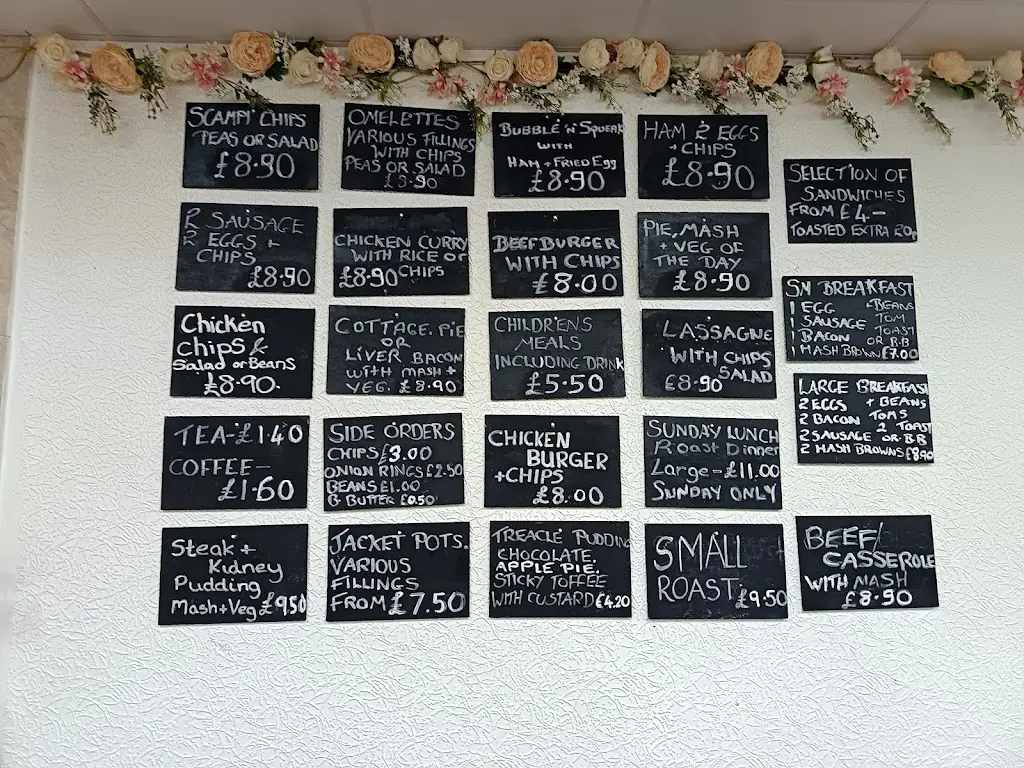 SCAMPI CHIPS
PEAS OR SALAD
£8.90
OMELETTES
VARIOUS FILLINGS
WITH CHIPS
PEAS OR SALAD
£8.90
BUBBLE 'N' SQUEAK
WITH
HAM + FRIED EGG
£8.90
HAM 2 EGGS
+ CHIPS
£8.90
SELECTION OF
SANDWICHES
FROM £4-
TOASTED EXTRA 20p
2 SAUSAGE
2 EGGS +
CHIPS
£8.90
CHICKEN CURRY
WITH RICE OR
£8.90 CHIPS
BEEFBURGER
WITH CHIPS
£8.00
PIE, MASH
+ VEG OF
THE DAY
£8.90
SM BREAKFAST
1 EGG + BEANS
1 SAUSAGE TOM
1 BACON TOAST
1 HASH BROWN OR B.B £7.00
Chicken
Chips &
Salad or Beans
£8.90.
COTTAGE. PIE
OR
LIVER BACON
WITH MASH +
VEG. £8.90
CHILDRENS
MEALS
INCLUDING DRINK
£5.50
LASSAGNE
WITH CHIPS
£8.90 SALAD
LARGE BREAKFAST
2 EGGS + BEANS
2 BACON TOMS
2 SAUSAGE 2 TOAST OR B.B
2 HASH BROWNS £8.90
TEA-£1.40
COFFEE-
£1.60
SIDE ORDERS
CHIPS £3.00
ONION RINGS £2.50
BEANS £1.00
B BUTTER £0.50
CHICKEN
BURGER
+CHIPS
£8.00
SUNDAY LUNCH
Roast Dinner
Large-£11.00
SUNDAY ONLY
Steak +
Kidney
Pudding
Mash+Veg £9.50
JACKET POTS.
VARIOUS
FILLINGS
FROM £7.50
TREACLE PUDDING
CHOCOLATE.
APPLE PIE.
STICKY TOFFEE
WITH CUSTARD £4.20
SMALL
ROAST. £9.50
BEEF/
CASSEROLE
WITH MASH
£8.90